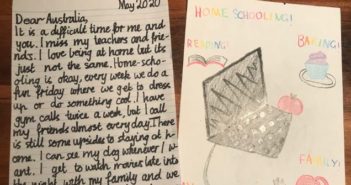 May 2020
Dear Australia,
It is a difficult time for me and
you. I miss my teachers and frie-
nds. I love being at home but its
just not the same. Home-scho-
oling is okay, every week we do a
fun friday where we get to dress
up or do something cool. I have
gym calls twice a week, but I call
my friends almost every day. There
is still some upsides to staying at h-
ome. I can see my dog whenever I w-
ant. I get to watch movies late into
the night with my family and we
HOME SCHOOLING!
READING!
BAKING!
FAMILY!